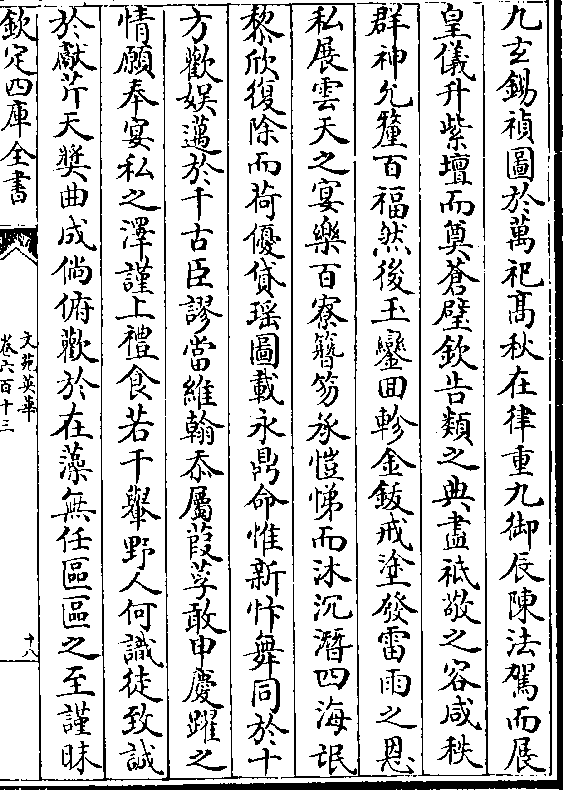 九玄錫禎圖於萬祀髙秋在律重九御辰陳法駕而展
皇儀升紫壇而奠蒼璧欽告類之典盡祗敬之容咸秩
群神允釐百福然後玉鑾回軫金鈸戒塗發雷雨之恩
私展雲天之宴樂百寮簪笏承愷悌而沐沉潛四海氓
黎欣復除而荷優貸瑶圖載永鼎命惟新忭舞同於十
方歡娛邁於千古臣謬當維翰忝屬葭莩敢申慶躍之
情願奉宴私之澤謹上禮食若干轝野人何識徒致誠
於獻芹天奬曲成倘俯歡於在藻無任區區之至謹昧
欽定四庫全書
文苑英華
卷六百十三
十八